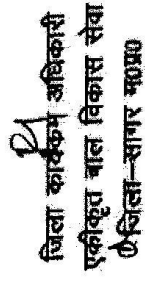 जिला कार्यक्रम अधिकारी
एकीकृत बाल विकास सेवा
जिला–सागर म०प्र०